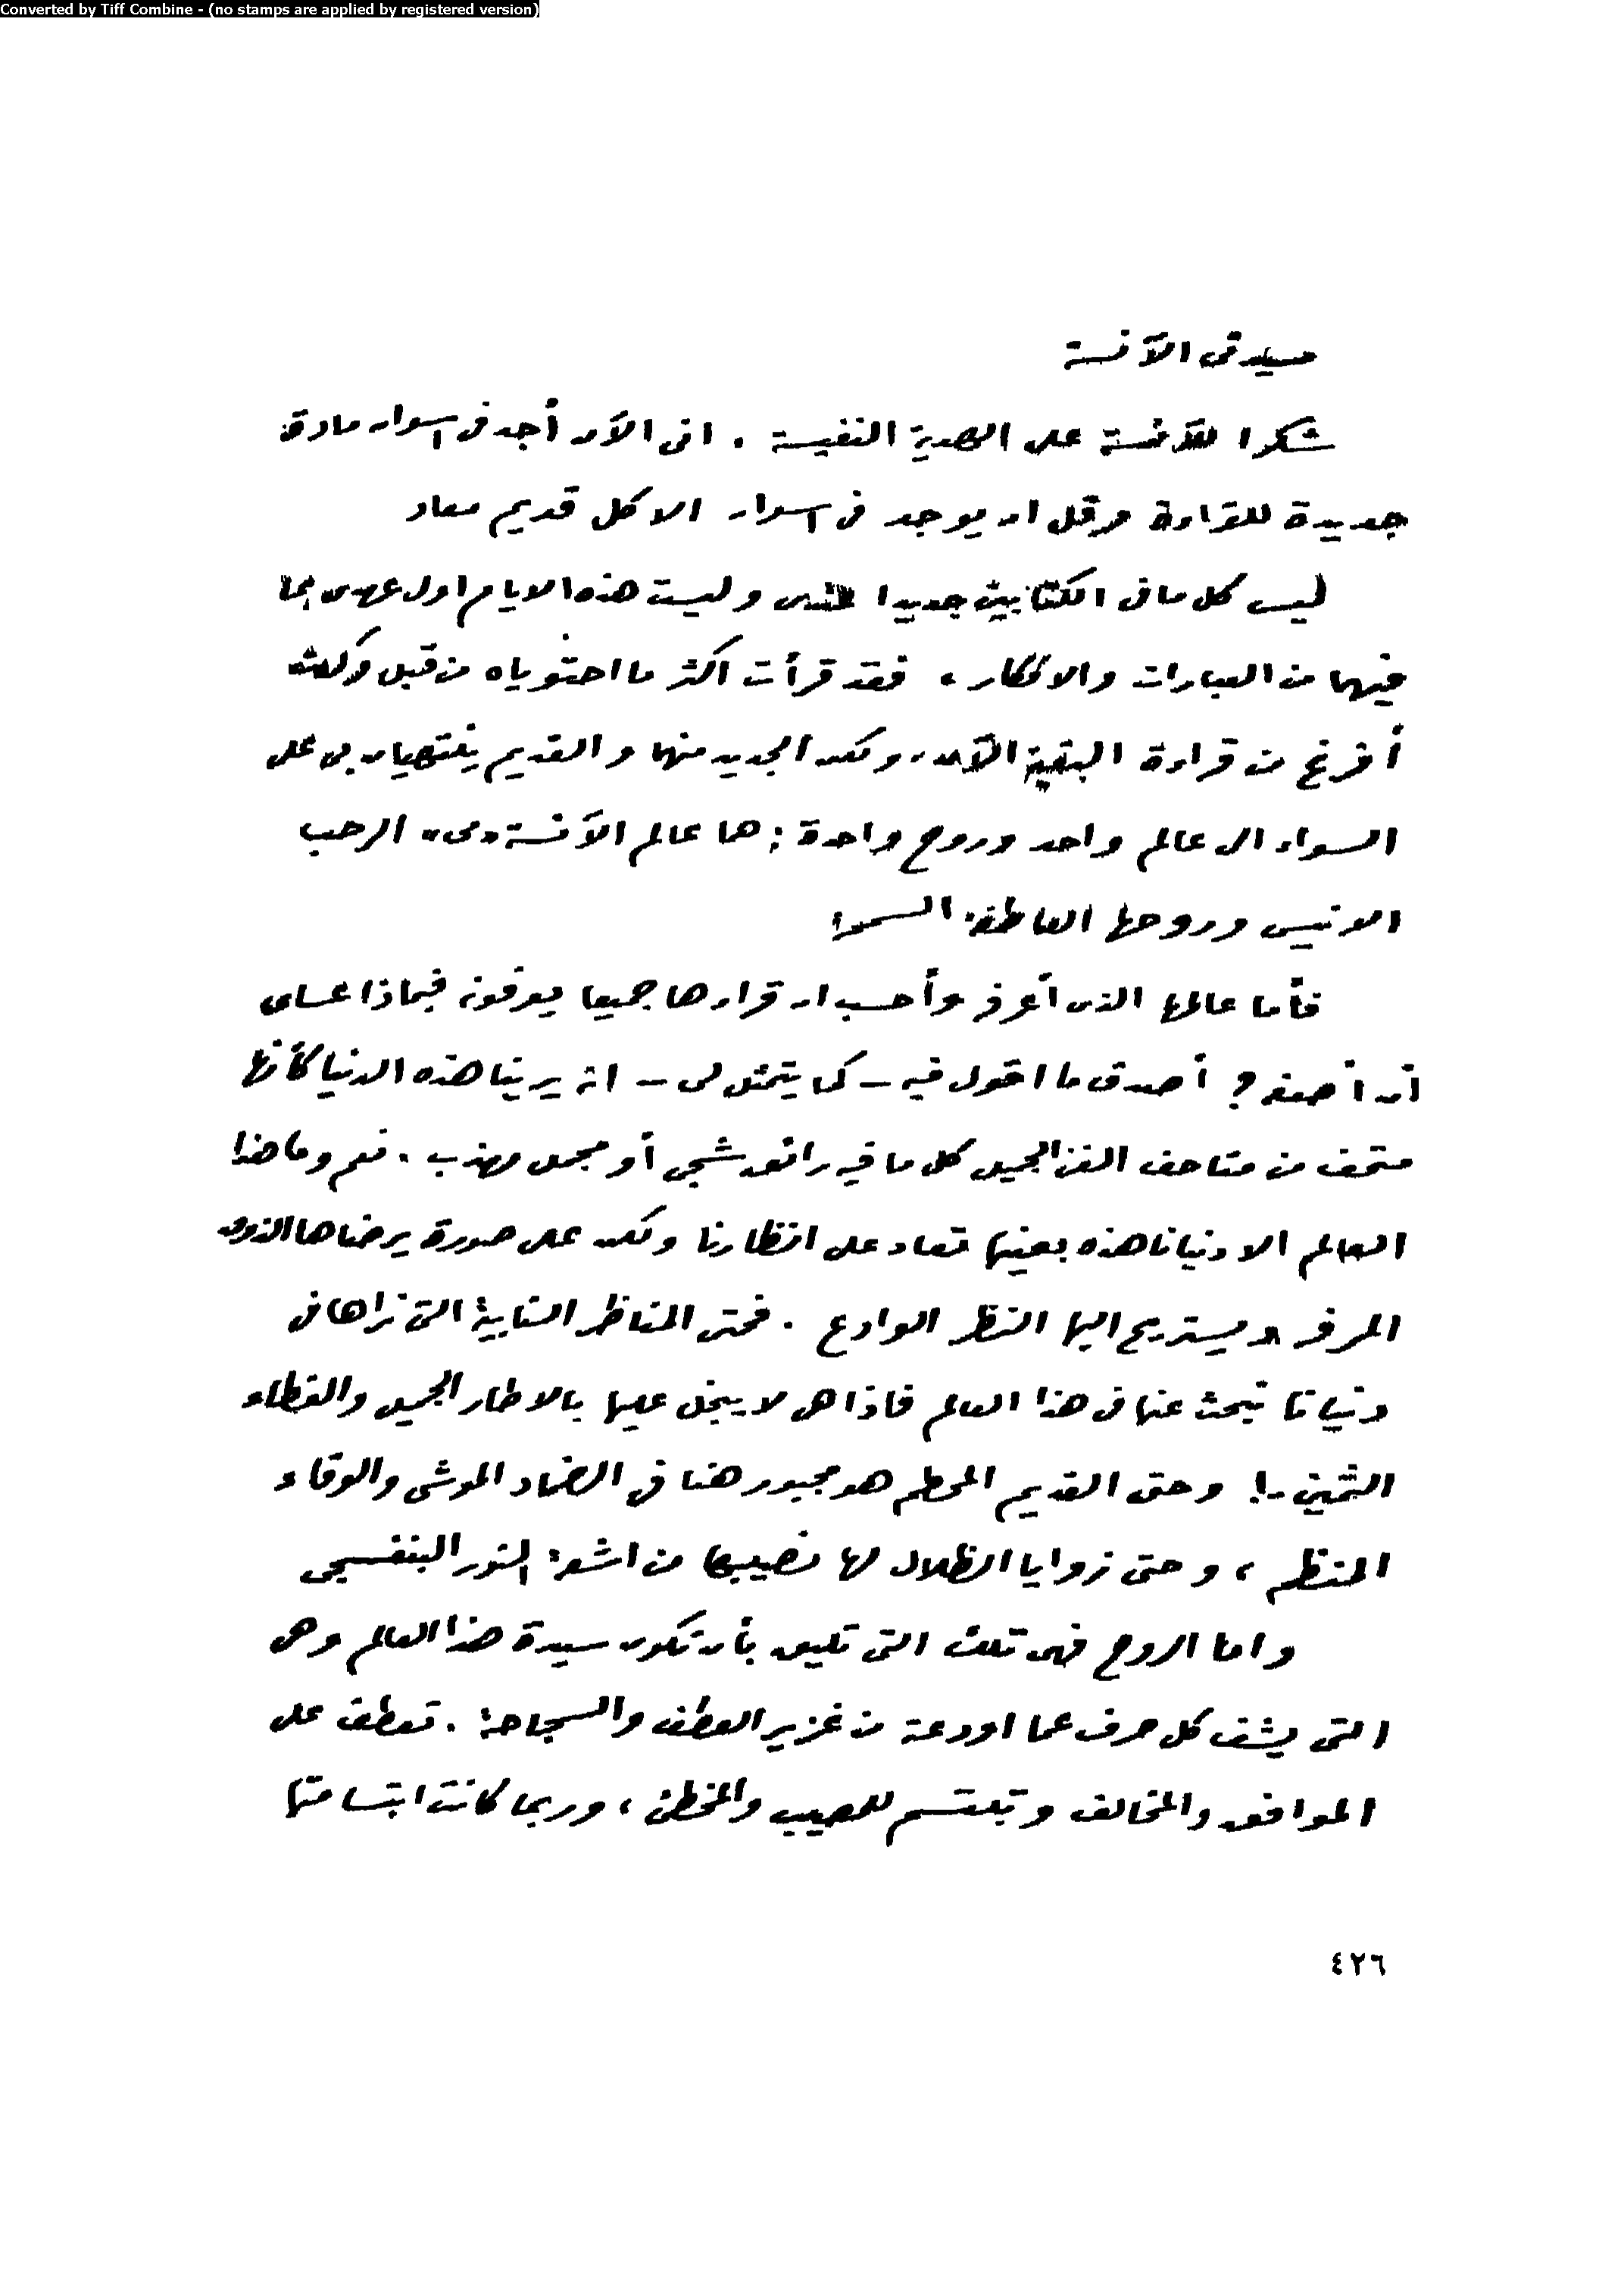 Converted by Tiff Combine - (no stamps are applied by registered version)
سيدتى الآنسة
شكرا للآنسة على الهدية النفيسة . انى الآن أجد فى اسوان مادة
جديدة للقراءة وقل ان يوجد فى اسوان الا كل قديم معاد
ليس كل ما فى الكتابين جديدا عندى وليست هذه الايام اول عهدى بما
فيهما من العبارات والافكار ، فقد قرأت اكثر ما احتوياه من قبل وكدت
أفرغ من قراءة البقية الآن ، ولكن الجديد منهما والقديم ينتهيان بى على
السواء الى عالم واحد وروح واحدة : هما عالم الآنسة « مى » الرحب
الانيس وروحها العاطفة السمحة
فأما عالمها الذى أعرفه وأحسب ان قراءها جميعا يعرفونه فبماذا عساى
أن أصفه ؟ أصدق ما اقول فيه – كما يتمثل لى – انه يرينا هذه الدنيا كأنها
متحف من متاحف الفن الجميل كل ما فيه رائق شجى أو مجمل مهذب . نعم وما هذا
العالم الا دنيانا هذه بعينها تعاد على انظارنا ولكن على صورة يرضاها الذوق
المرفه ويستريح اليها النظر الوادع . فحتى المناظر النابية التى نراها فى
دنيانا نبحث عنها فى هذا العالم فاذا هى لا يبخل عليها بالاطار الجميل والغطاء
الثمين ! وحتى القديم المحطم هو مجبور هنا فى الضماد الموشى والوقاء
المنظم ، وحتى زوايا الظلال لها نصيبها من اشعة النور البنفسجى
واما الروح فهى تلك التى تليق بأن تكون سيدة هذا العالم وهى
التى يشف كل حرف عما اودعته من غزير العطف والسجاحة . تعطف على
الموافق والمخالف وتبتسم للمصيب والمخطئ ، وربما كانت ابتسامتها
٤٢٦